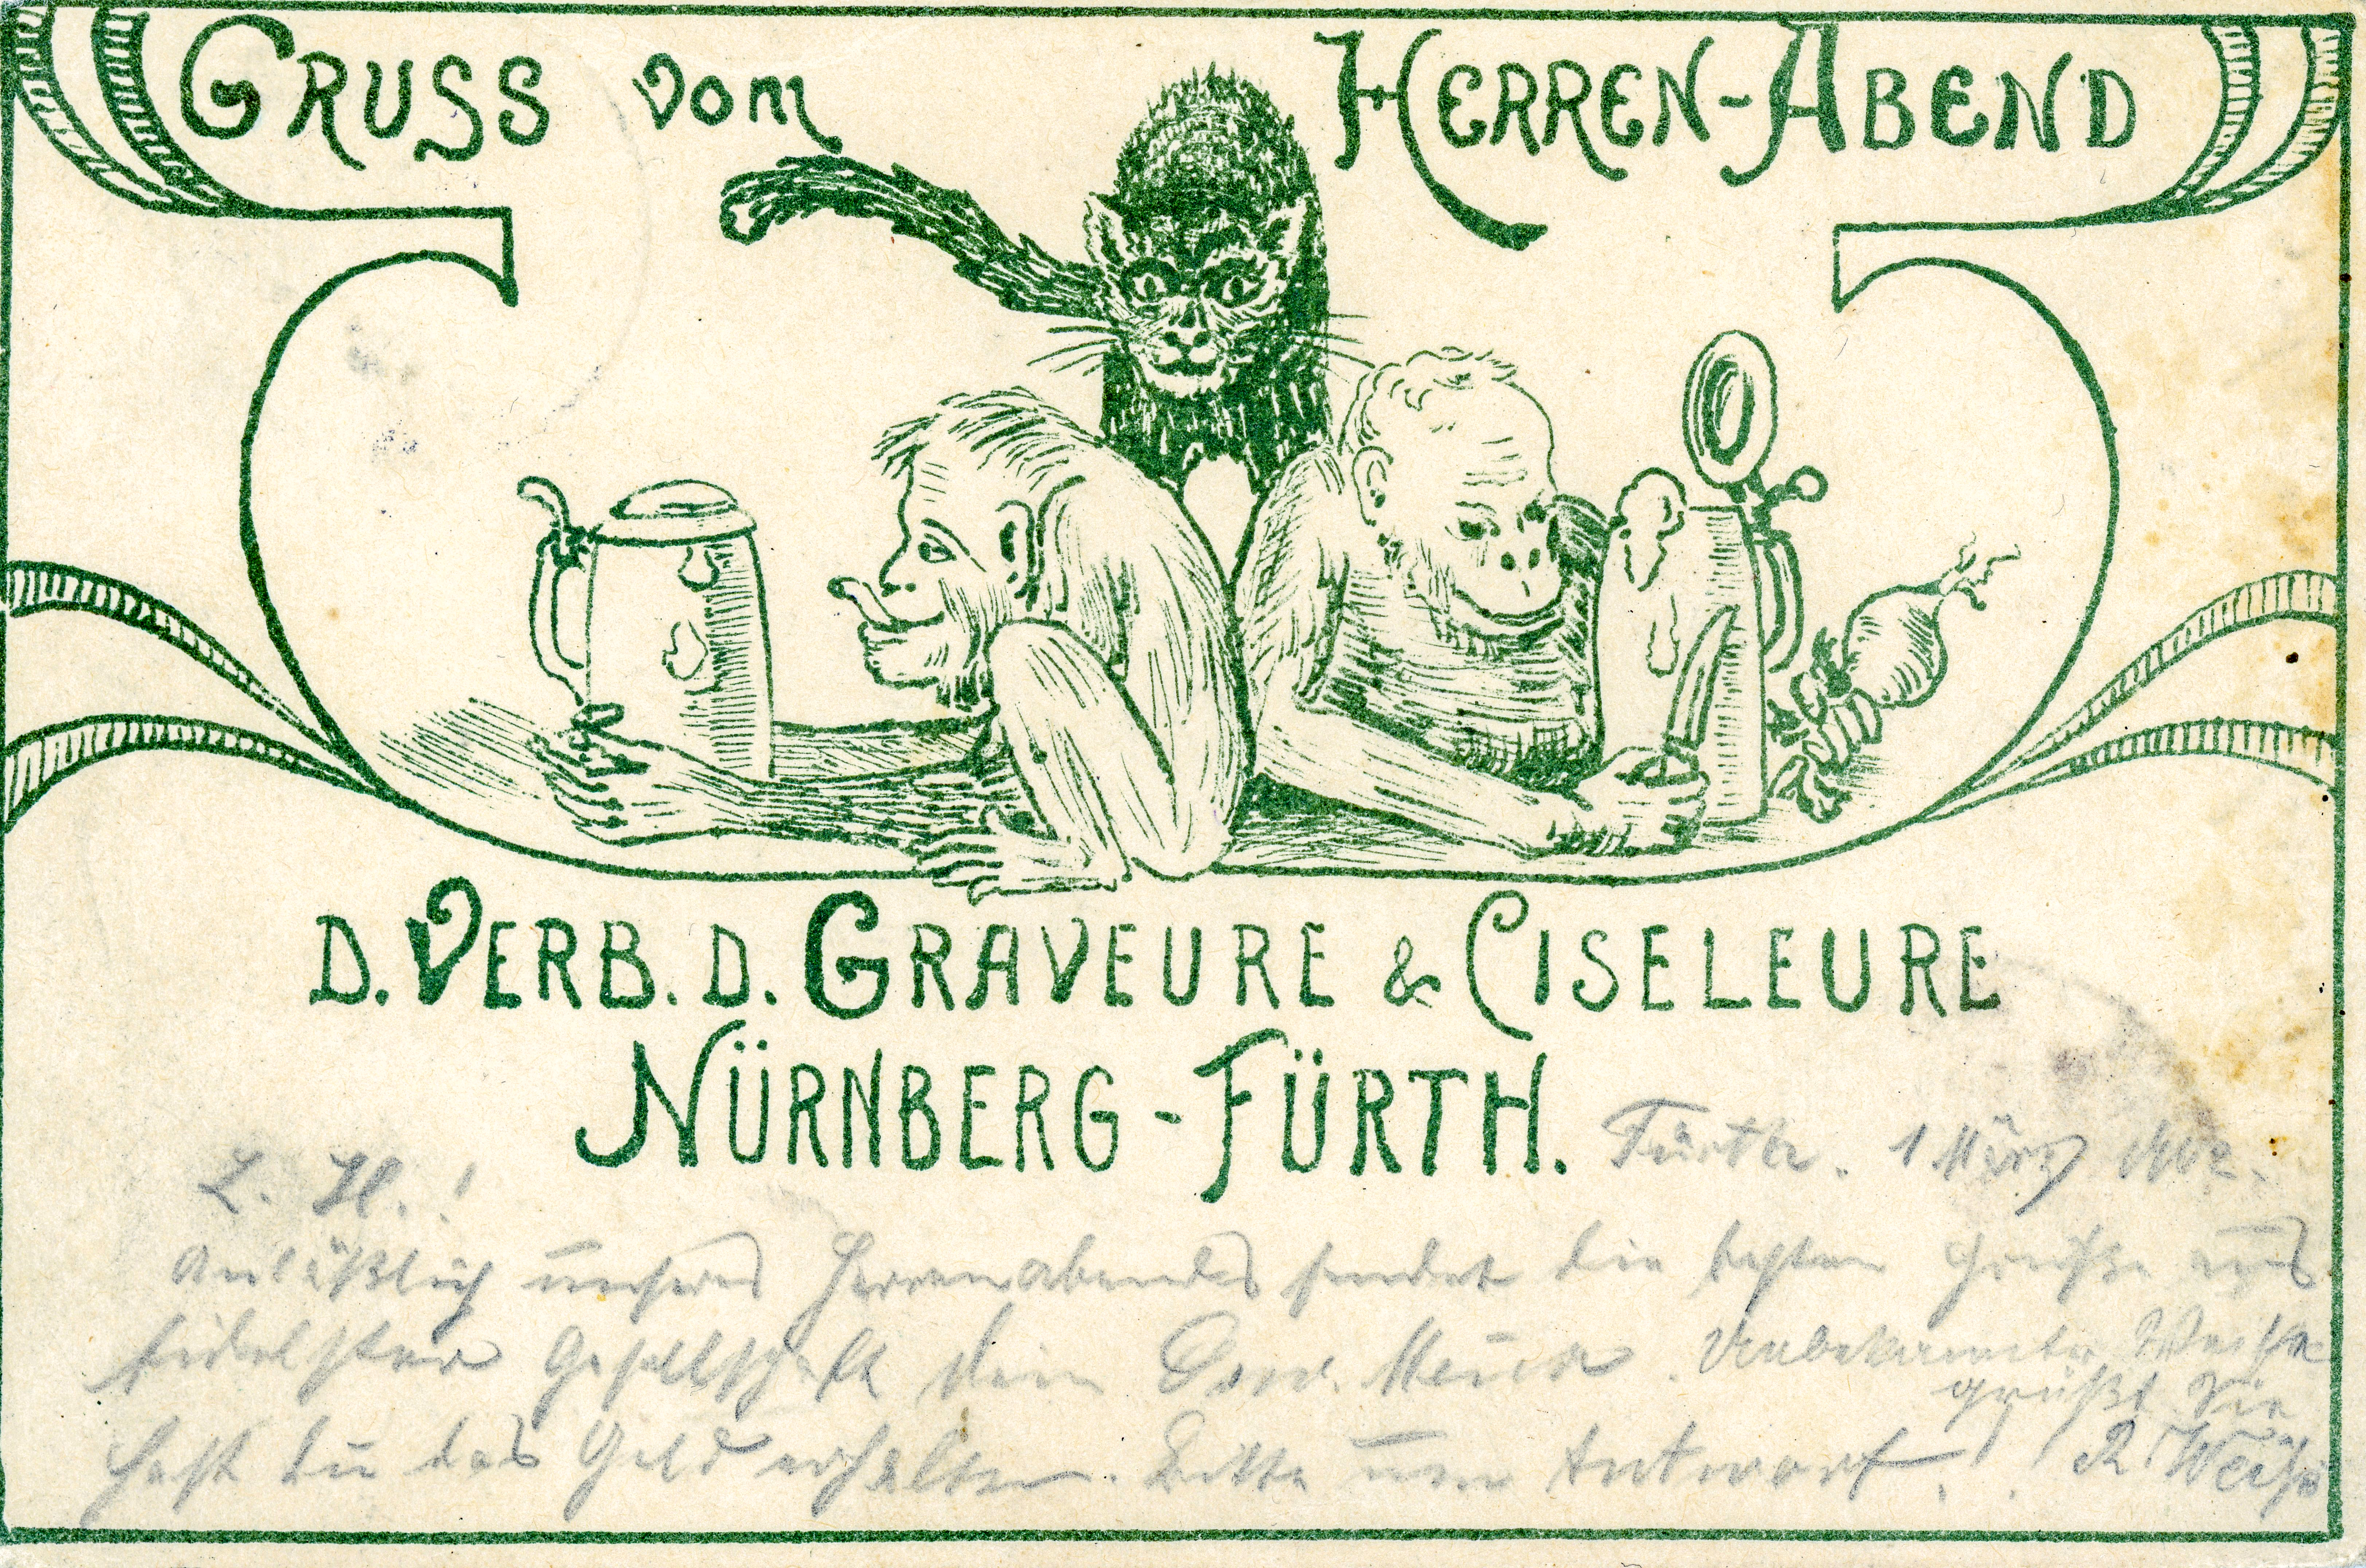 GRUSS vom HERREN-ABEND
D. VERB. D. GRAVEURE & CISELEURE
NÜRNBERG-FÜRTH.
Fürth. 1 März 1902.
L. H.!
Anläßlich unseres Herrenabends sendet die besten Grüße aus
fidelster Gesellschaft dein Conr. Meier. Unbekannter Weise
grüßt Sie
Hast du das Geld erhalten. Bitte um Antwort! R Weiß